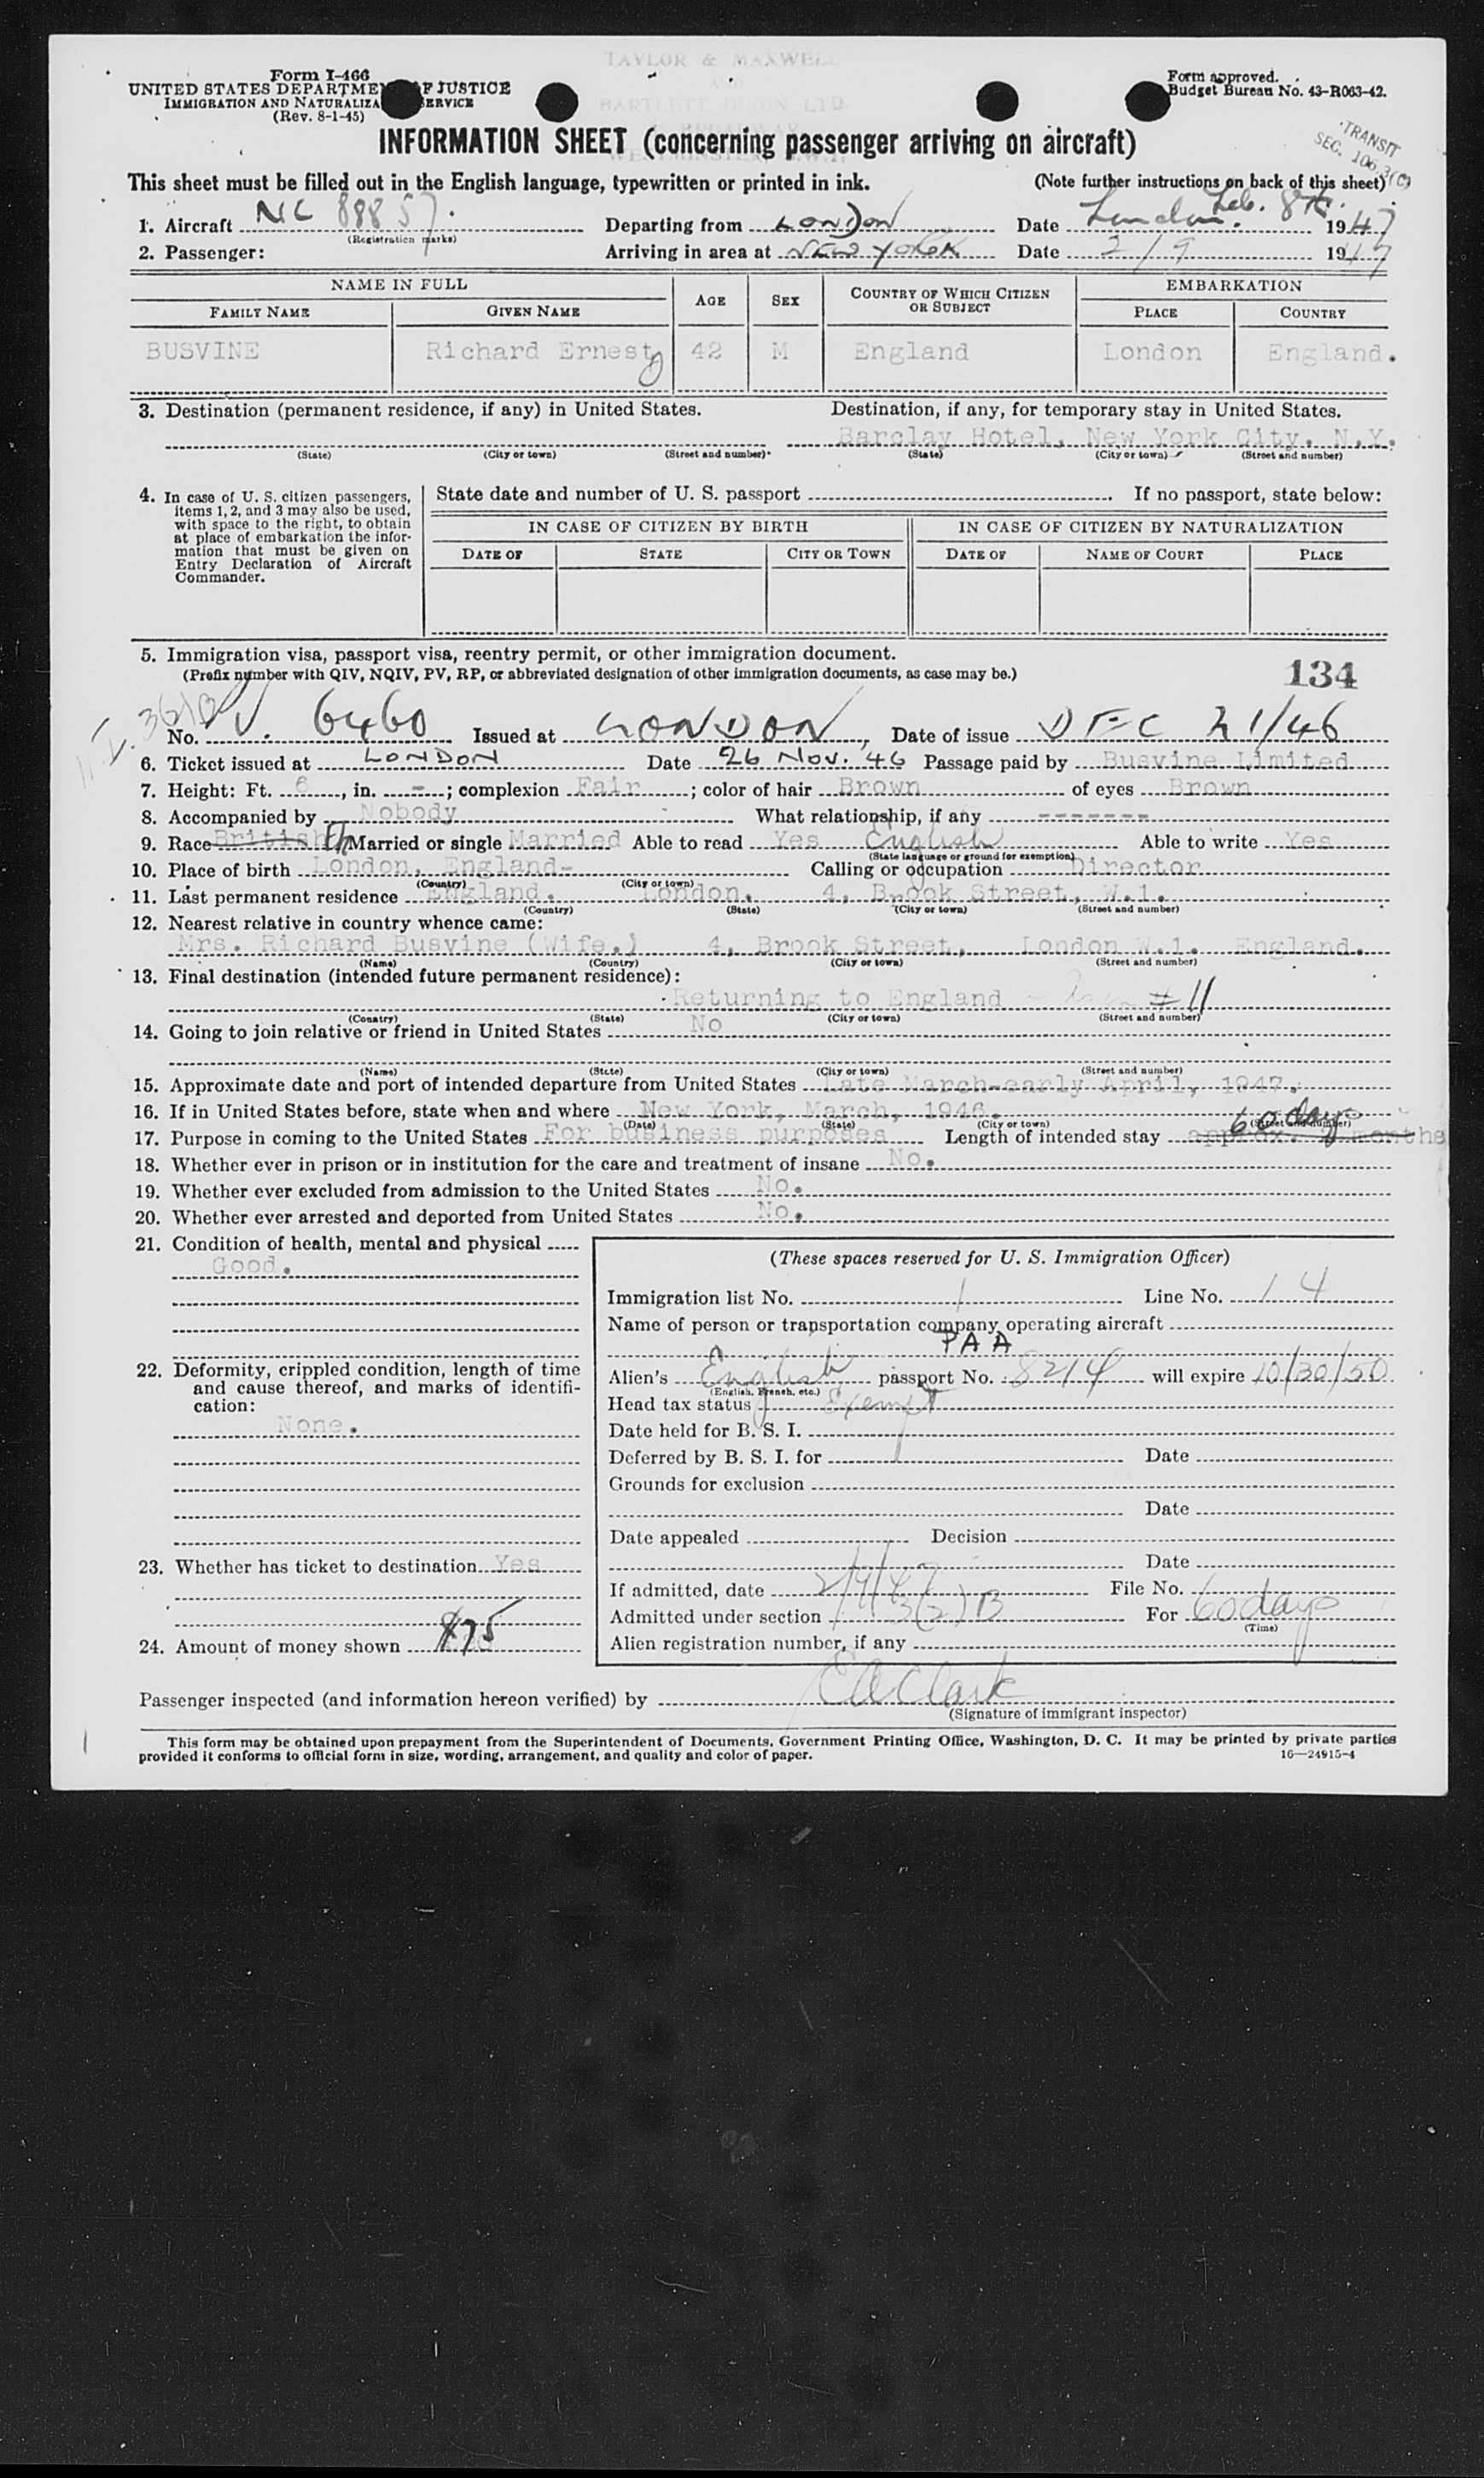 TAYLOR & MAXWELL
AND
BARTLETT LTD.
WESTMINSTER, S.W.1.
Form I-466
UNITED STATES DEPARTME F JUSTICE
IMMIGRATION AND NATURALIZA ERVICE
(Rev. 8-1-45)
Form approved.
Budget Bureau No. 43-R063-42.
INFORMATION SHEET (concerning passenger arriving on aircraft)
TRANSIT
SEC. 106.3(C)
This sheet must be filled out in the English language, typewritten or printed in ink. (Note further instructions on back of this sheet)
1. Aircraft NC 88857. Departing from LONDON Date London. Feb. 8th. 1947
(Registration marks)
2. Passenger: Arriving in area at NEW YORK Date 2/9 1947
NAME IN FULL AGE SEX COUNTRY OF WHICH CITIZEN OR SUBJECT EMBARKATION
FAMILY NAME GIVEN NAME PLACE COUNTRY
BUSVINE Richard Ernest 42 M England London England.
3. Destination (permanent residence, if any) in United States. Destination, if any, for temporary stay in United States.
Barclay Hotel, New York City. N.Y.
(State) (City or town) (Street and number) (State) (City or town) (Street and number)
4. In case of U. S. citizen passengers, items 1, 2, and 3 may also be used, with space to the right, to obtain at place of embarkation the information that must be given on Entry Declaration of Aircraft Commander.
State date and number of U. S. passport If no passport, state below:
IN CASE OF CITIZEN BY BIRTH IN CASE OF CITIZEN BY NATURALIZATION
DATE OF STATE CITY OR TOWN DATE OF NAME OF COURT PLACE
5. Immigration visa, passport visa, reentry permit, or other immigration document.
(Prefix number with QIV, NQIV, PV, RP, or abbreviated designation of other immigration documents, as case may be.)
134
No. PV. 6460 Issued at LONDON, Date of issue DEC 21/46
6. Ticket issued at LONDON Date 26 Nov. 46 Passage paid by Busvine Limited
7. Height: Ft. 6, in. -; complexion Fair; color of hair Brown of eyes Brown
8. Accompanied by Nobody What relationship, if any -------
9. Race British Married or single Married Able to read Yes English Able to write Yes
(State language or ground for exemption)
10. Place of birth London, England- Calling or occupation Director
(Country) (City or town)
11. Last permanent residence England. London. 4, Brook Street, W.1.
(Country) (State) (City or town) (Street and number)
12. Nearest relative in country whence came:
Mrs. Richard Busvine (Wife.) 4, Brook Street, London W.1. England.
(Name) (Country) (City or town) (Street and number)
13. Final destination (intended future permanent residence):
Returning to England # 11
(Country) (State) (City or town) (Street and number)
14. Going to join relative or friend in United States No
(Name) (State) (City or town) (Street and number)
15. Approximate date and port of intended departure from United States Late March-early April, 1947.
16. If in United States before, state when and where New York, March, 1946.
(Date) (State) (City or town) (Street and number)
17. Purpose in coming to the United States For business purposes Length of intended stay 60 days approx. months
18. Whether ever in prison or in institution for the care and treatment of insane No.
19. Whether ever excluded from admission to the United States No.
20. Whether ever arrested and deported from United States No.
21. Condition of health, mental and physical
Good.
22. Deformity, crippled condition, length of time and cause thereof, and marks of identification:
None.
23. Whether has ticket to destination Yes
24. Amount of money shown $75
(These spaces reserved for U. S. Immigration Officer)
Immigration list No. 1 Line No. 14
Name of person or transportation company operating aircraft
PAA
Alien's English passport No. 8214 will expire 10/30/50
(English, French, etc.)
Head tax status Exempt
Date held for B. S. I.
Deferred by B. S. I. for Date
Grounds for exclusion
Date
Date appealed Decision
Date
If admitted, date 2/9/47 File No.
Admitted under section 3(2)B For 60 days
(Time)
Alien registration number, if any
Passenger inspected (and information hereon verified) by E A Clark
(Signature of immigrant inspector)
This form may be obtained upon prepayment from the Superintendent of Documents, Government Printing Office, Washington, D. C. It may be printed by private parties
provided it conforms to official form in size, wording, arrangement, and quality and color of paper.
16—24915-4